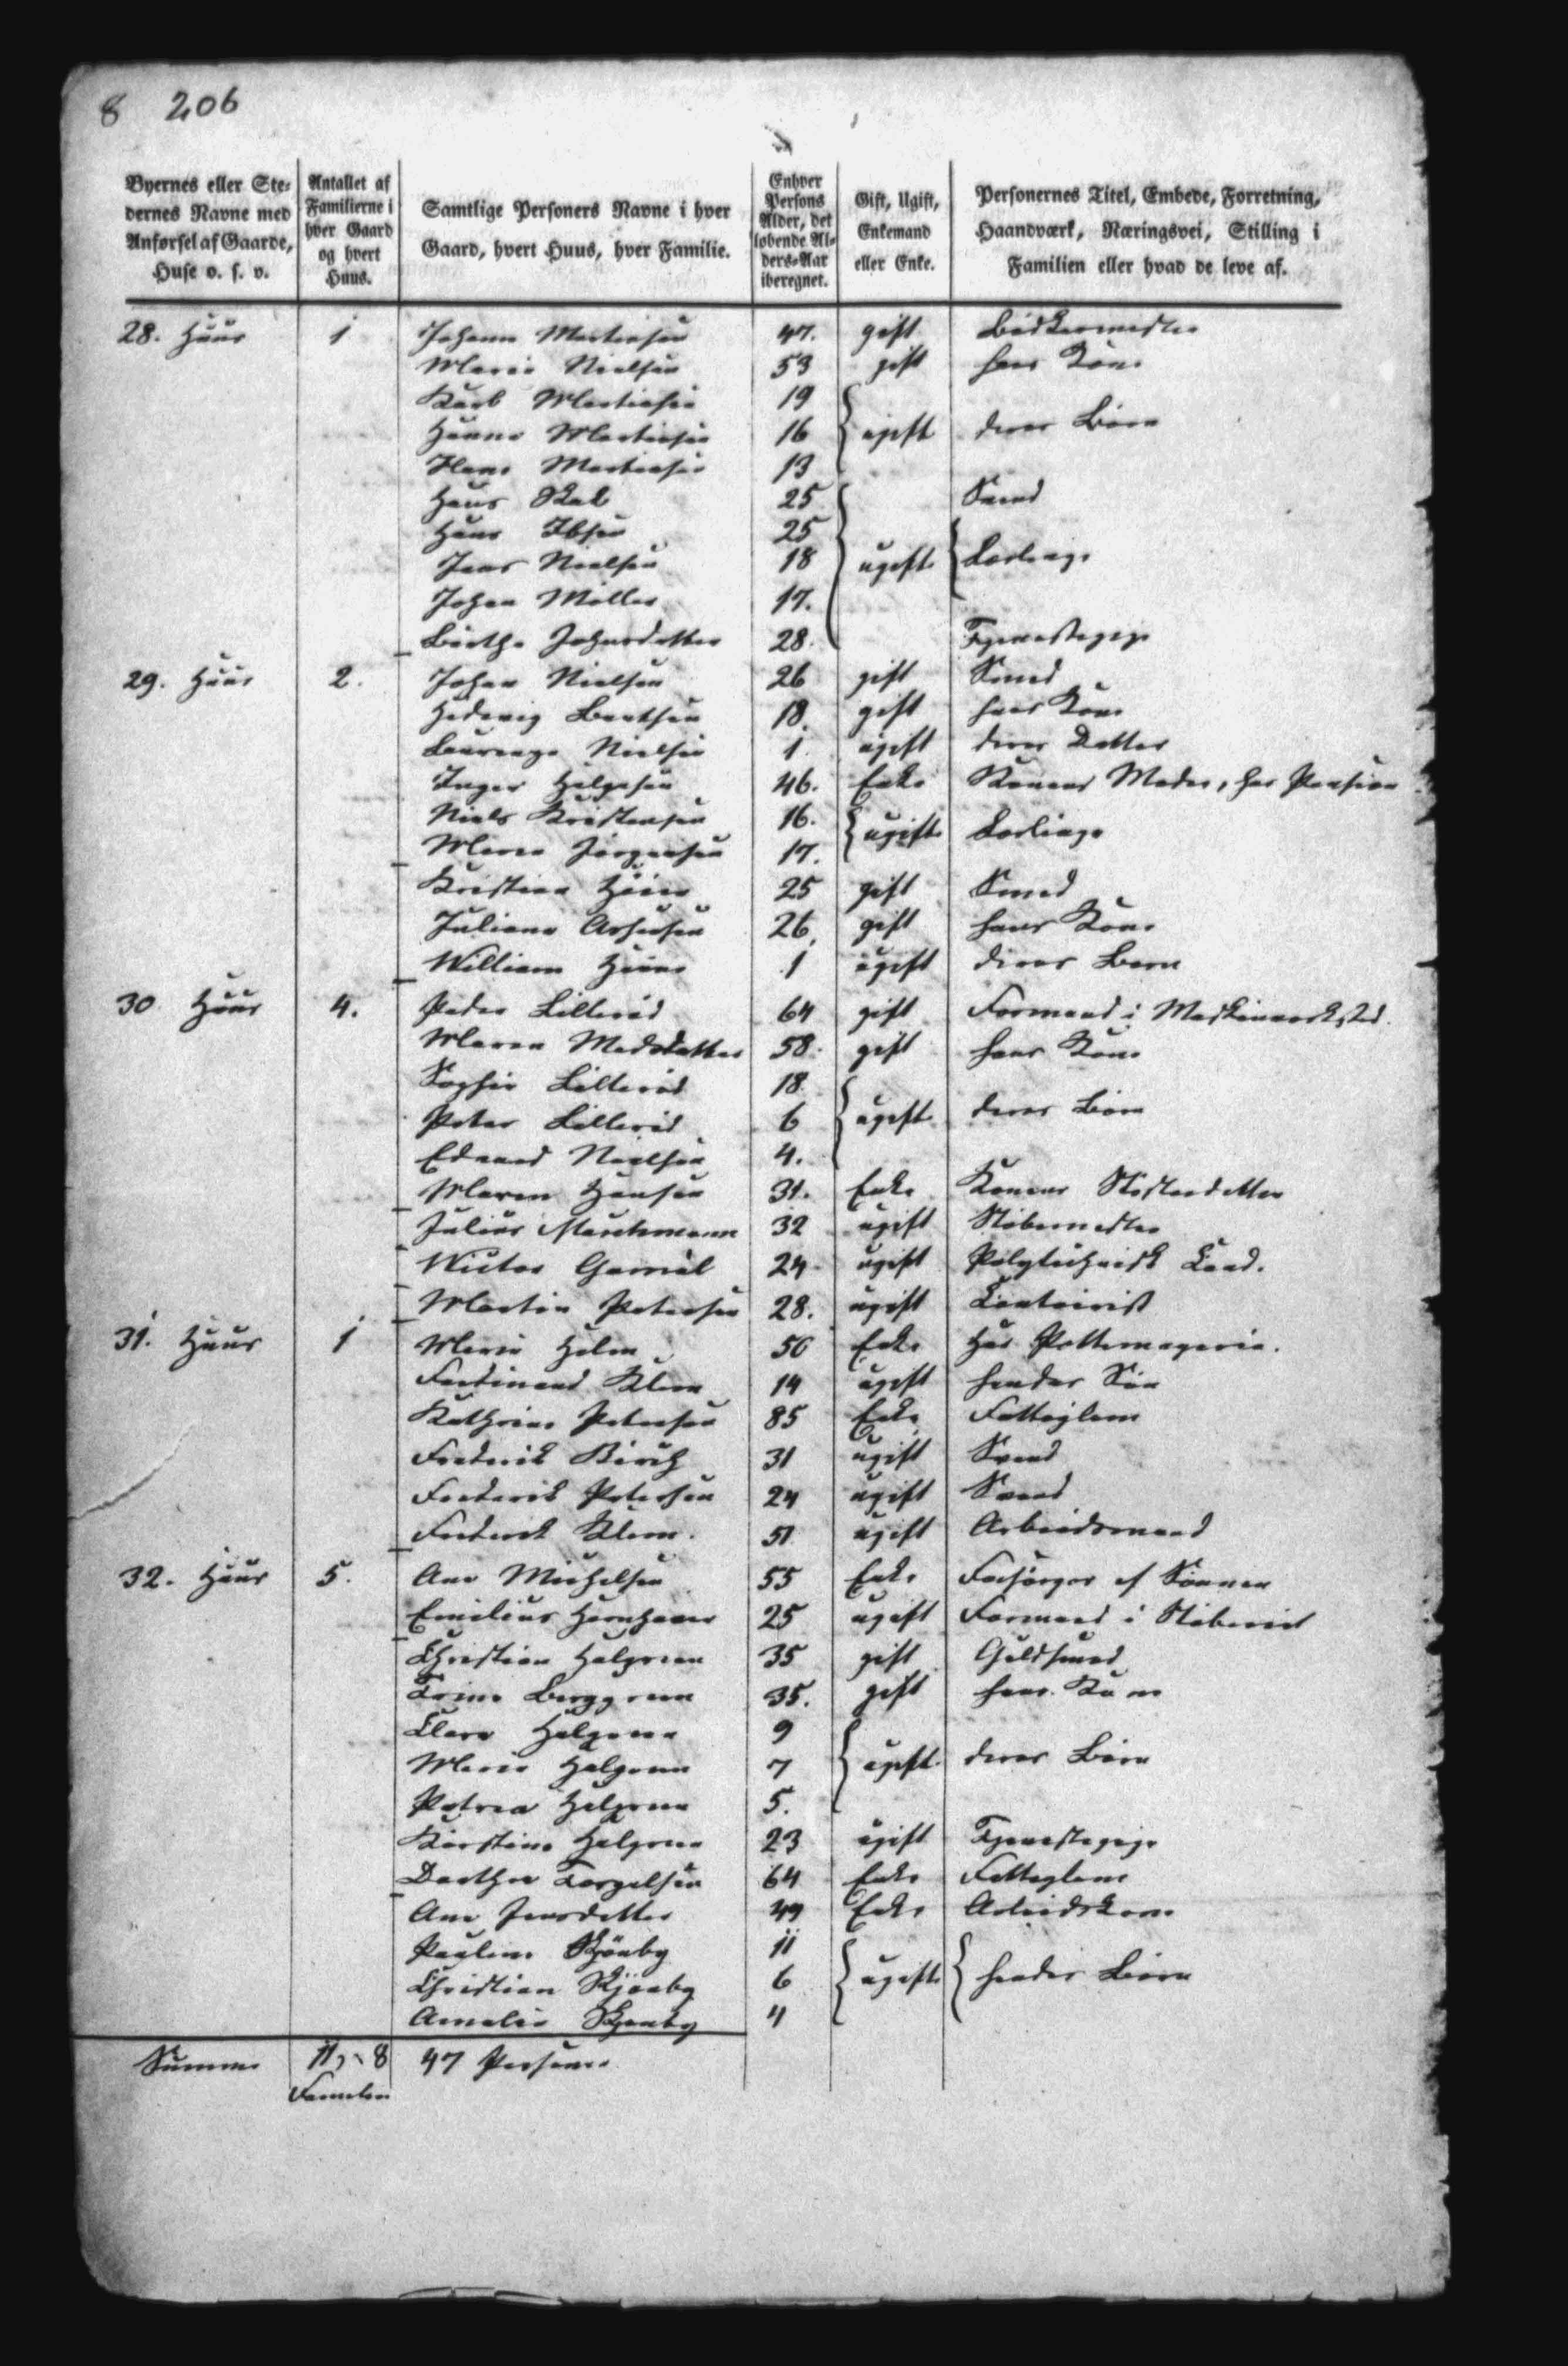 8 206
Byernes eller Stedernes Navne med Anførsel af Gaarde, Huse o. s. v.
Antallet af Familierne i hver Gaard og hvert Huus.
Samtlige Personers Navne i hver Gaard, hvert Huus, hver Familie.
Enhver Persons Alder, det løbende Alders-Aar iberegnet.
Gift, Ugift, Enkemand eller Enke.
Personernes Titel, Embede, Forretning, Haandværk, Næringsvei, Stilling i Familien eller hvad de leve af.
28. Huus 1 Johann Mortensen 47. gift Bødkermester
Marie Nielsen 53 gift hans Kone
Mortensen 19
Hanne Mortensen 16 ugift deres Børn
Hans Mortensen 13
Hans 25 Svend
Hans Ibsen 25
Jens Nielsen 18 ugift Lærlinge
Johan Møller 17.
Birthe Johnsdatter 28. Tjenestepige
29. Huus 2. Johan Nielsen 26 gift Smed
Hedevig Bentsen 18. gift hans Kone
Nielsen 1 ugift deres Datter
Inger Helgesen 46. Enke Konens Moder, har Pension
Niels Kristensen 16. ugift Lærlinge
Jørgensen 17.
Kristian 25 gift Smed
Juliane 26. gift hans Kone
William 1 ugift deres Barn
30 Huus 4. Peder Lillerød 64 gift Formand i Maskinværksted.
Maren Madsdatter 58. gift hans Kone
Sophie Lillerød 18
Peter Lillerød 6 ugift deres Børn
Edvard Nielsen 4.
Maren Hansen 31. Enke Konens Søsterdatter
Julius 32 ugift Støbemester
Victor 24 ugift Polytechnisk Cand.
Martin Petersen 28. ugift Contoirist
31. Huus 1 Marie Holm 50 Enke Har Pottemageri.
Ferdinand Klem 14 ugift hendes Søn
Kathrine Petersen 85 Enke Fattiglem
Frederik Birch 31 ugift Svend
Frederik Petersen 24 ugift Svend
Frederik Klem. 51 ugift Arbeidsmand
32. Huus 5. Ane Michelsen 55 Enke Forsørges af Sønnen
Emilius 25 ugift Formand i Støberiet
Christian Halgreen 35 gift Guldsmed
Trine Berggreen 35. gift hans Kone
Clara Halgreen 9
Marie Halgreen 7 ugift deres Børn
Petrea Halgreen 5.
Kirstine Halgreen 23 ugift Tjenestepige
Dorthe Torgelsen 64 Enke Fattiglem
Ane Jensdatter 49 Enke Arbeidskone
Pauline Skjønby 11
Christian Skjønby 6 ugift hendes Børn
Amalie Skjønby 4
Summa 8 47 Personer
Familier